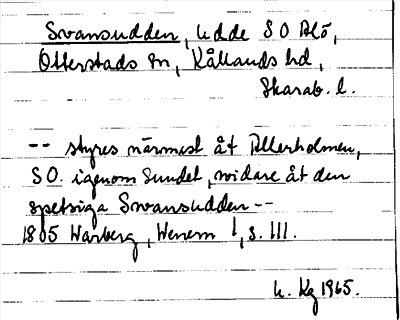 Svansudden, Udde SO Blö,
Otterstads sn, Kållands hd,
Skarab. l.
-- styres närmast åt Allerholmen,
SO. igenom Sundet, vidare åt den
spetsiga Svansudden --
1805 Warberg, Wenern 1, s. 111.
K. Kg 1965.